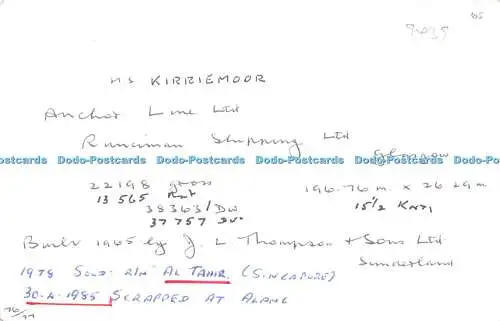 W5
MS KIRRIEMOOR
Anchor Line Ltd
Runciman Shipping Ltd
Glasgow
Postcards Dodo-Postcards Dodo-Postcards Dodo-Postcards Dodo-Postcards Dodo-Postcards
22198 gross 196.76 m. x 26.29 m
13565 Net 15½ KNTS
38363/DW
37757 DW.
Built 1965 by J. L Thompson + Sons Ltd
Sunderland
1978 SOLD R/N AL TAHIR. (SINGAPORE)
30.4.1985 SCRAPPED AT ALANG
76/77